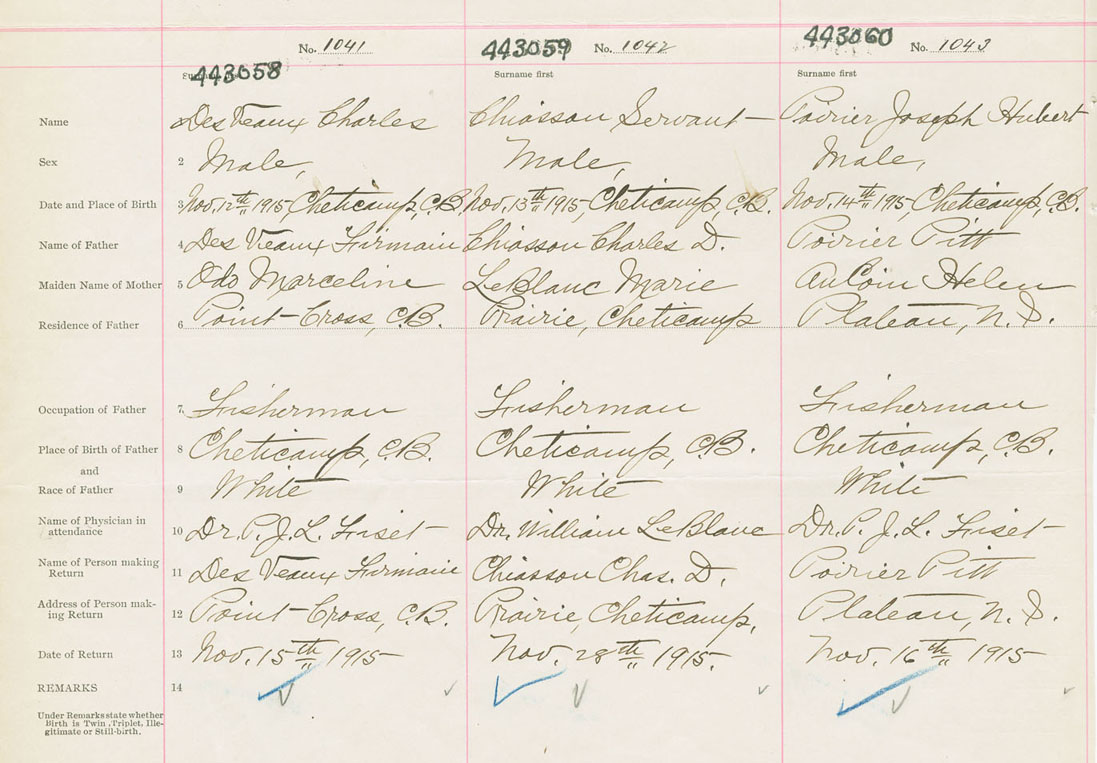 No. 1041 443059 No. 1042 443060 No. 1043
443058 Surname first Surname first
Name Des Veaux Charles Chiasson Servant Poirier Joseph Hubert
Sex 2 Male, Male, Male,
Date and Place of Birth 3 Nov. 12th 1915, Cheticamp, C.B. Nov. 13th 1915, Cheticamp, C.B. Nov. 14th 1915 Cheticamp, C.B.
Name of Father 4 Des Veaux Firmain Chiasson Charles D. Poirier Pitt
Maiden Name of Mother 5 Odo Marceline LeBlanc Marie AuCoin Helen
Residence of Father 6 Point-Cross, C.B. Prairie, Cheticamp Plateau, N.S.
Occupation of Father 7 Fisherman Fisherman Fisherman
Place of Birth of Father 8 Cheticamp, C.B. Cheticamp, C.B. Cheticamp, C.B.
and
Race of Father 9 White White White
Name of Physician in
attendance 10 Dr. P. J. L. Fiset Dr. William LeBlanc Dr. P. J. L. Fiset
Name of Person making
Return 11 Des Veaux Firmain Chiasson Chas. D. Poirier Pitt
Address of Person mak-
ing Return 12 Point-Cross, C.B. Prairie, Cheticamp. Plateau, N.S.
Date of Return 13 Nov. 15th 1915 Nov. 28th 1915. Nov. 16th 1915
REMARKS 14
Under Remarks state whether
Birth is Twin, Triplet, Ille-
gitimate or Still-birth.